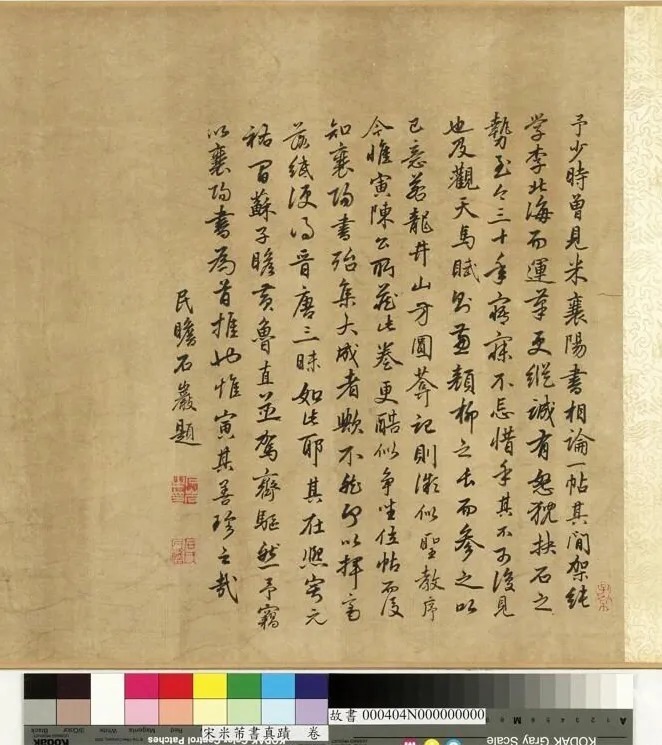 予少時曾見米襄陽書相論一帖其間架純
學李北海而運筆更縱誠有怒猊抉石之
勢至今三十年寤寐不忘惜乎其不可復見
也及觀天馬賦則兼顏柳之長而參之以
己意若龍井山方圓菴記則似聖教序
今惟寅陳公所藏此卷更酷似爭坐位帖而後
知襄陽書殆集大成者歟不然何以揮毫
落紙便得晉唐三昧如此耶其在熙寧元
祐間蘇子瞻黃魯直並駕齊驅然予竊
以襄陽書為首推也惟寅其善珍之哉
民瞻石巖題
故書 000404N000000000
宋米芾書真蹟 卷
KODAK Gray Scale
Kodak
Color Control Patches